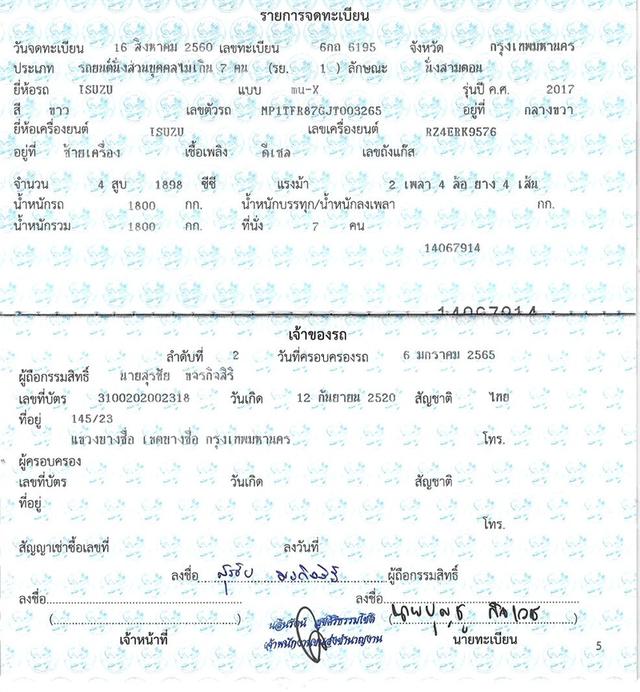 รายการจดทะเบียน
วันจดทะเบียน 16 สิงหาคม 2560 เลขทะเบียน 6กถ 6195 จังหวัด กรุงเทพมหานคร
ประเภท รถยนต์นั่งส่วนบุคคลไม่เกิน 7 คน (รย. 1 ) ลักษณะ นั่งสามตอน
ยี่ห้อรถ ISUZU แบบ mu-X รุ่นปี ค.ศ. 2017
สี ขาว เลขตัวรถ MP1TFR87GJT003265 อยู่ที่ กลางขวา
ยี่ห้อเครื่องยนต์ ISUZU เลขเครื่องยนต์ RZ4ERK9576
อยู่ที่ ซ้ายเครื่อง เชื้อเพลิง ดีเซล เลขถังแก๊ส
จำนวน 4 สูบ 1898 ซีซี แรงม้า 2 เพลา 4 ล้อ ยาง 4 เส้น
น้ำหนักรถ 1800 กก. น้ำหนักบรรทุก/น้ำหนักลงเพลา กก.
น้ำหนักรวม 1800 กก. ที่นั่ง 7 คน
14067914
14067914
เจ้าของรถ
ลำดับที่ 2 วันที่ครอบครองรถ 6 มกราคม 2565
ผู้ถือกรรมสิทธิ์ นายสุรชัย ขจรกิจสิริ
เลขที่บัตร 3100202002318 วันเกิด 12 กันยายน 2520 สัญชาติ ไทย
ที่อยู่ 145/23
แขวงบางซื่อ เขตบางซื่อ กรุงเทพมหานคร โทร.
ผู้ครอบครอง
เลขที่บัตร วันเกิด สัญชาติ
ที่อยู่
โทร.
สัญญาเช่าซื้อเลขที่ ลงวันที่
ลงชื่อ สุรชัย ขจรกิจสิริ ผู้ถือกรรมสิทธิ์
ลงชื่อ ลงชื่อ
( ) ( )
เจ้าหน้าที่ เจ้าพนักงานขนส่งชำนาญงาน นายทะเบียน
5